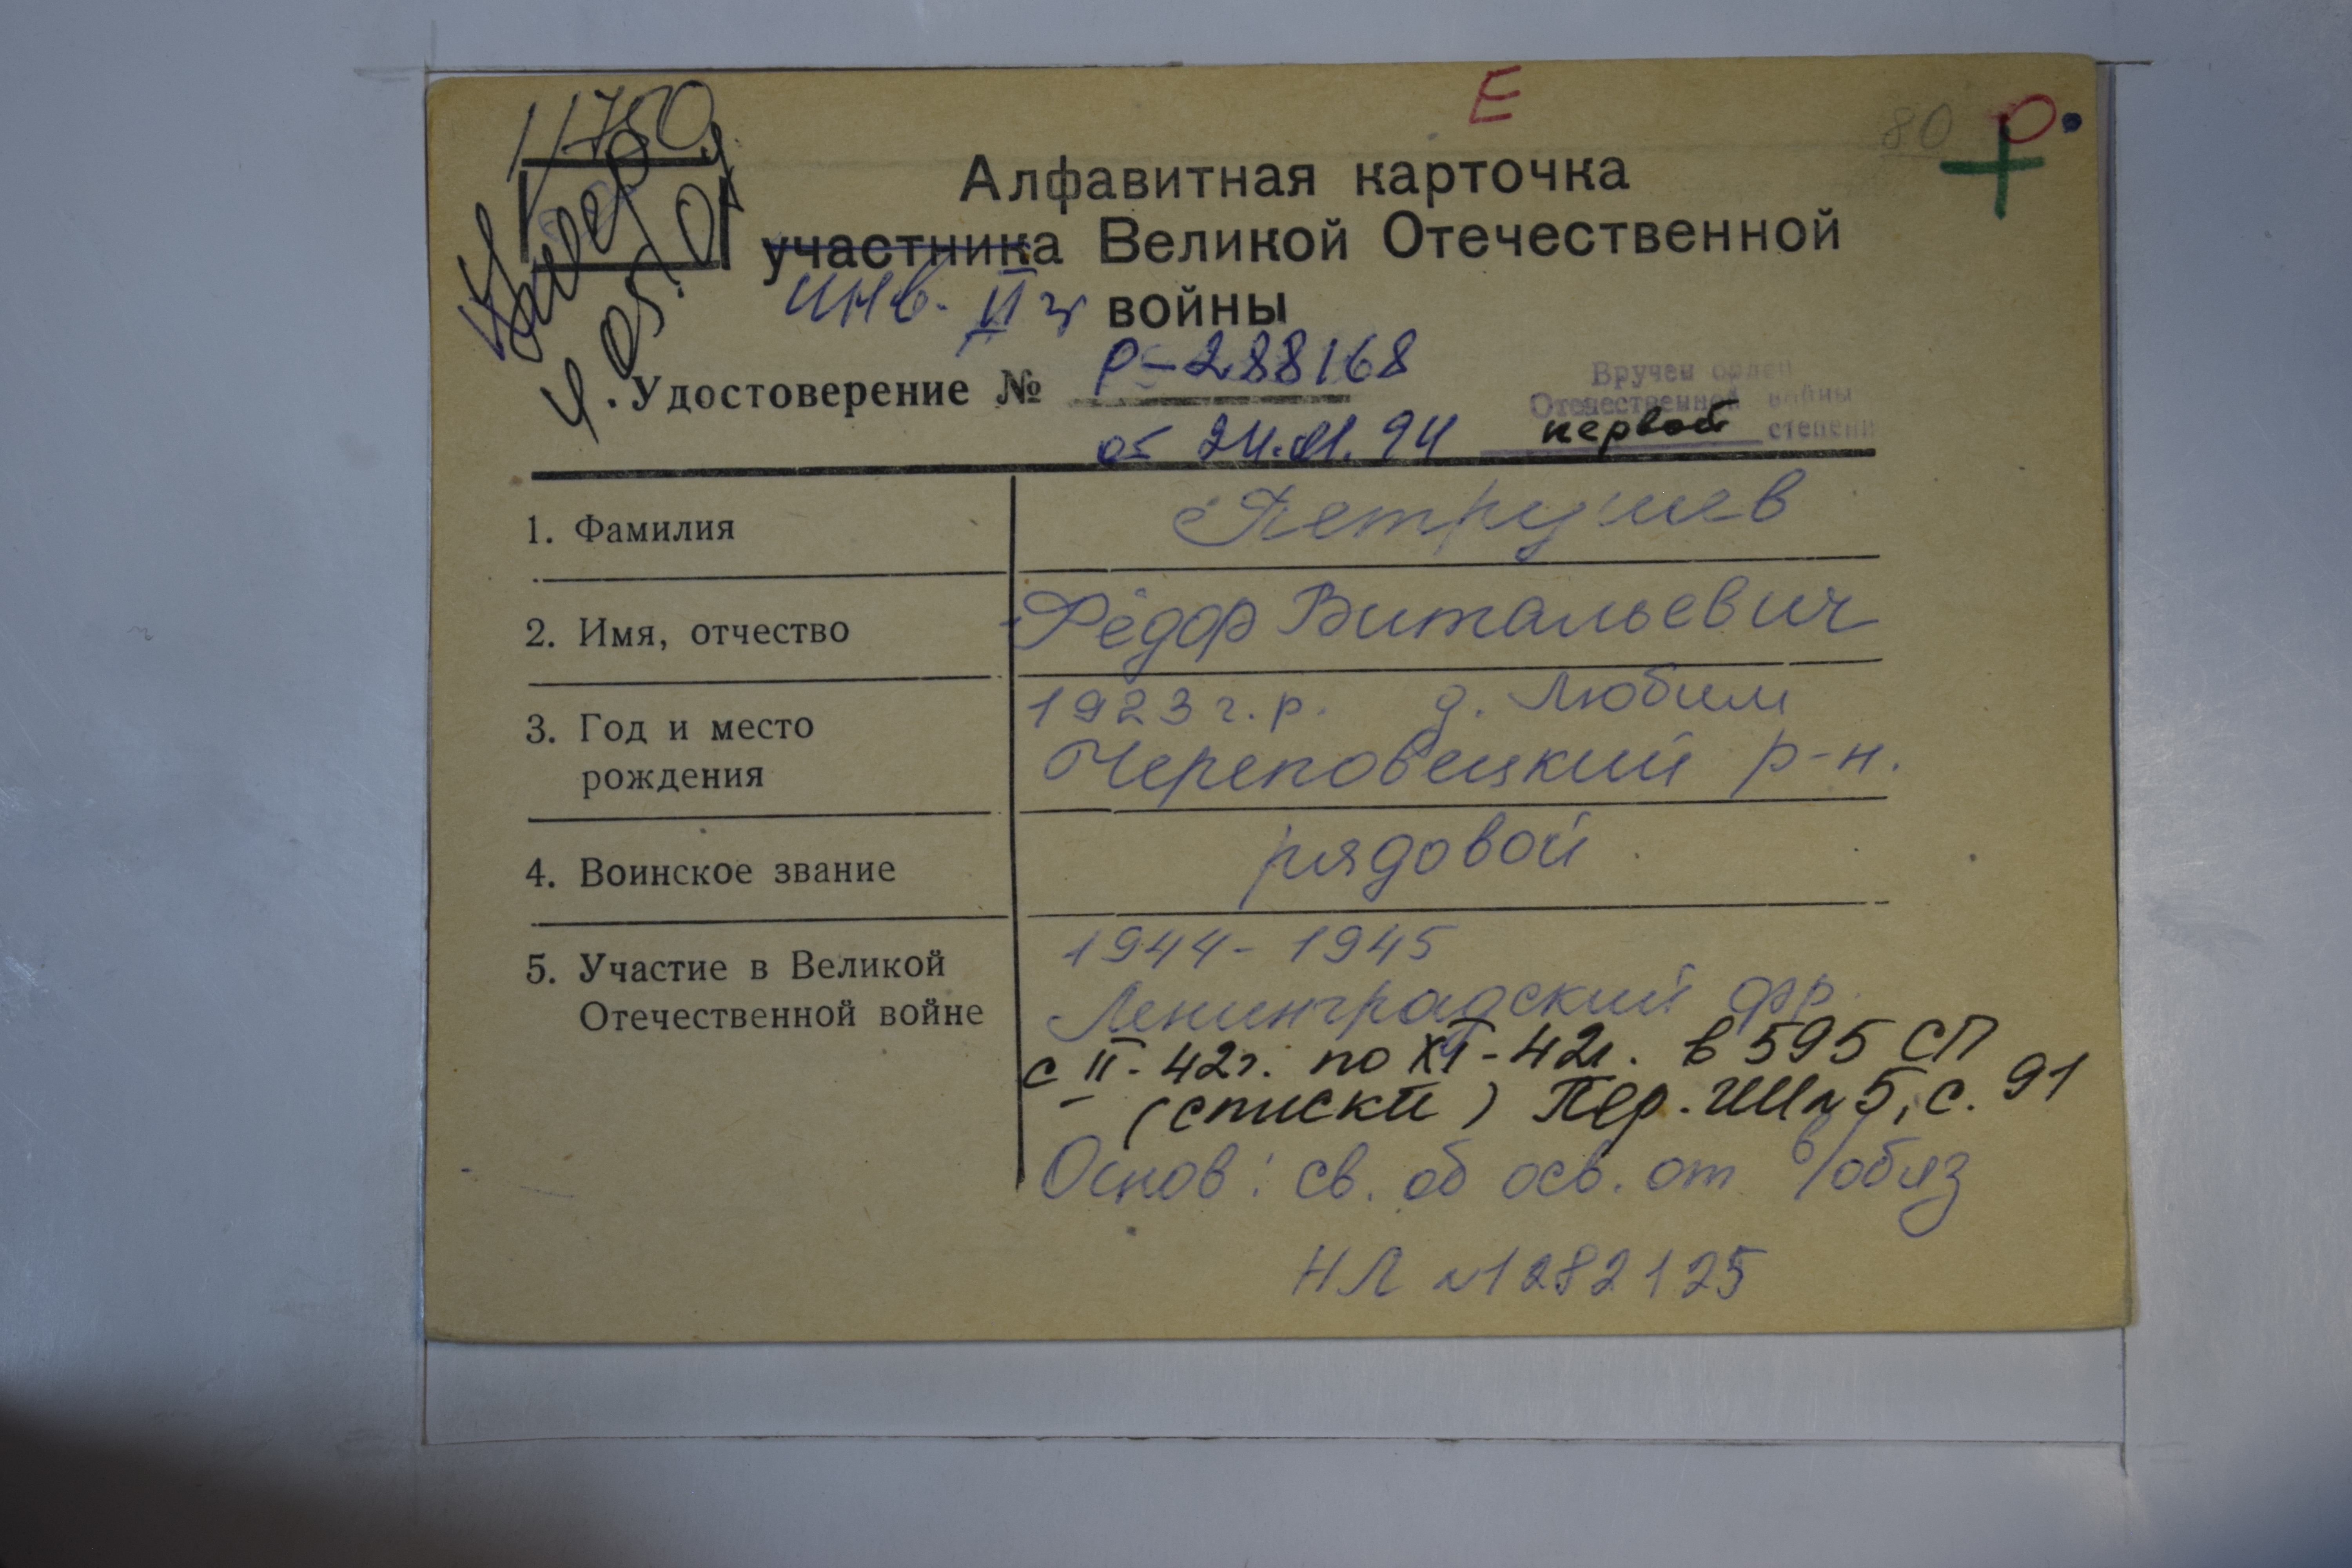 11750
Умер
4.05.01
Е
80
О.
Алфавитная карточка
участника Великой Отечественной
инв. II гр войны
Удостоверение № Р-288168
от 24.01.94
Вручен орден
Отечественной войны
первой степени
1. Фамилия Петрушев
2. Имя, отчество Фёдор Витальевич
3. Год и место рождения 1923 г.р. д. Любим
Череповецкий р-н.
4. Воинское звание рядовой
5. Участие в Великой Отечественной войне 1944-1945
Ленинградский фр.
с II-42г. по XI-42г. в 595 СП
(списки) Пер. №5, с. 91
Основ: св. об осв. от в/обяз
НЛ №1282125